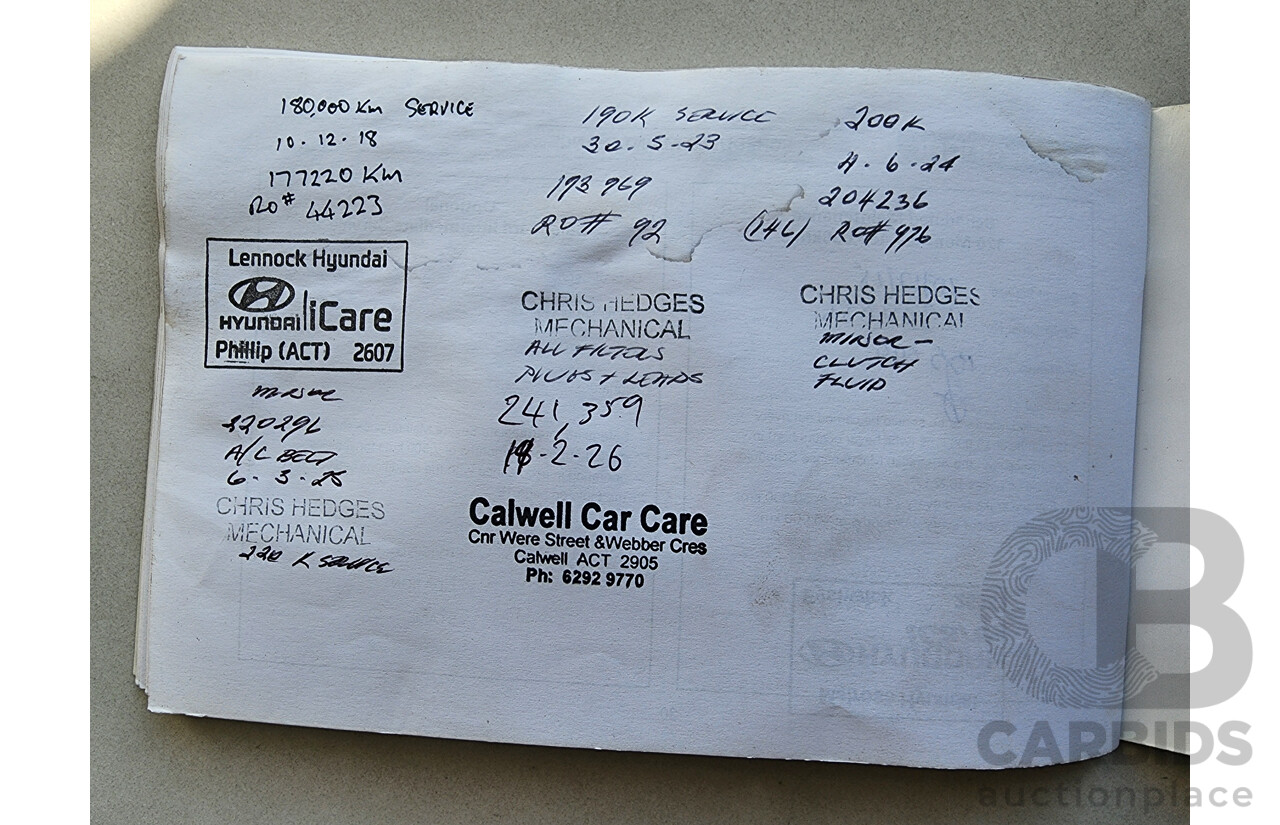 180,000 Km SERVICE
10.12.18
177220 Km
RO# 44223
Lennock Hyundai
HYUNDAI iCare
Phillip (ACT) 2607
190K SERVICE
30.5.23
193969
RO# 92
CHRIS HEDGES
MECHANICAL
ALL FILTERS
PLUGS + LEADS
200K
4.6.24
204236
(146) RO# 976
CHRIS HEDGES
MECHANICAL
MINOR -
CLUTCH
FLUID
MINOR
220296
A/C BELT
6.3.25
CHRIS HEDGES
MECHANICAL
220 K SERVICE
241,359
18.2.26
Calwell Car Care
Cnr Were Street &Webber Cres
Calwell ACT 2905
Ph: 6292 9770
CARBIDS
auctionplace